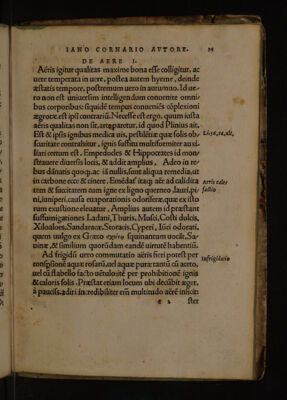 IANO CORNARIO AVTORE.
DE AERE I.
Aëris igitur qualitas maxime bona esse colligitur, ac
uere temperata in uere, postea autem hyeme, deinde
æstatis tempore, postremum uero in autumno. Id ue
ro non est uniuersim intelligendum conuenire omni-
bus corporibus: siquidē tempus conueniēs cōplexioni
ægrotæ, est ipsi contrariū. Necesse est ergo, quum iusta
aëris qualitas non sit, ut aparetur, id quod Plinius ait.
Est & ipsis ignibus medica uis, pestilētiæ quæ solis ob-
scuritate contrahitur, ignis suffitu multiformiter auxi-
liari certum est. Empedocles & Hippocrates id mon-
strauere diuersis locis, & addit amplius. Adeo in re-
bus dānatis quoq; ac iā nullis, sunt aliqua remedia, ut
in carbone exto & cinere. Emēdat' itaq; aër ad calidita
tem & siccitatem cum igne ex ligno querneo, lauri, pi-
ni, iuniperi, causa euaporationis odoriferæ, quæ ex isto
rum exustione eleuatur. Amplius autem id præstant
suffumigationes Ladani, Thuris, Musci, Costi dulcis,
Xiloaloes, Sandaracæ, Storacis, Cyperi, Iunci odorati,
quem uulgo ex Græco squinantum uocāt, Sa-
uinæ, & similium quorūdam eandē uirtutē habentiū.
Ad frigidū uero commutatio aëris fieri potest per
conspersionē aquæ rosarū, uel aquæ puræ tantū cū aceto,
uel cū flabello facto uētulo itē per prohibitionē ignis
& caloris solis. Præstat etiam locum ubi decūbit æger,
à paucis adiri: incredibiliter em̄ multitudo aërē inficit
aëris cales
factio
Infrigidatio